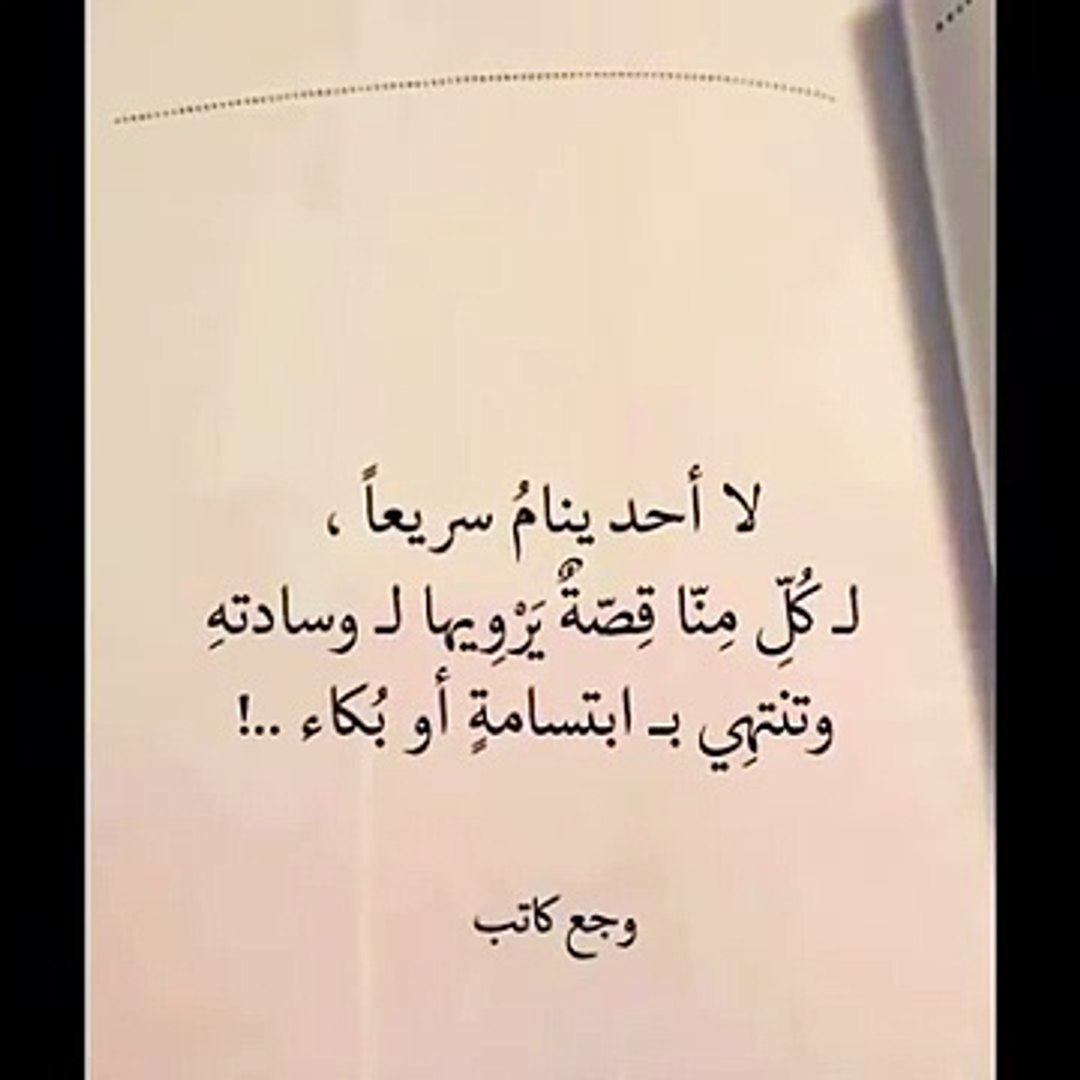 لا أحد ينامُ سريعاً ،
لـ كُلِّ مِنّا قِصّةٌ يَرْوِيها لـ وسادتهِ
وتنتهِي بـ ابتسامةٍ أو بُكاء ..!
وجع كاتب